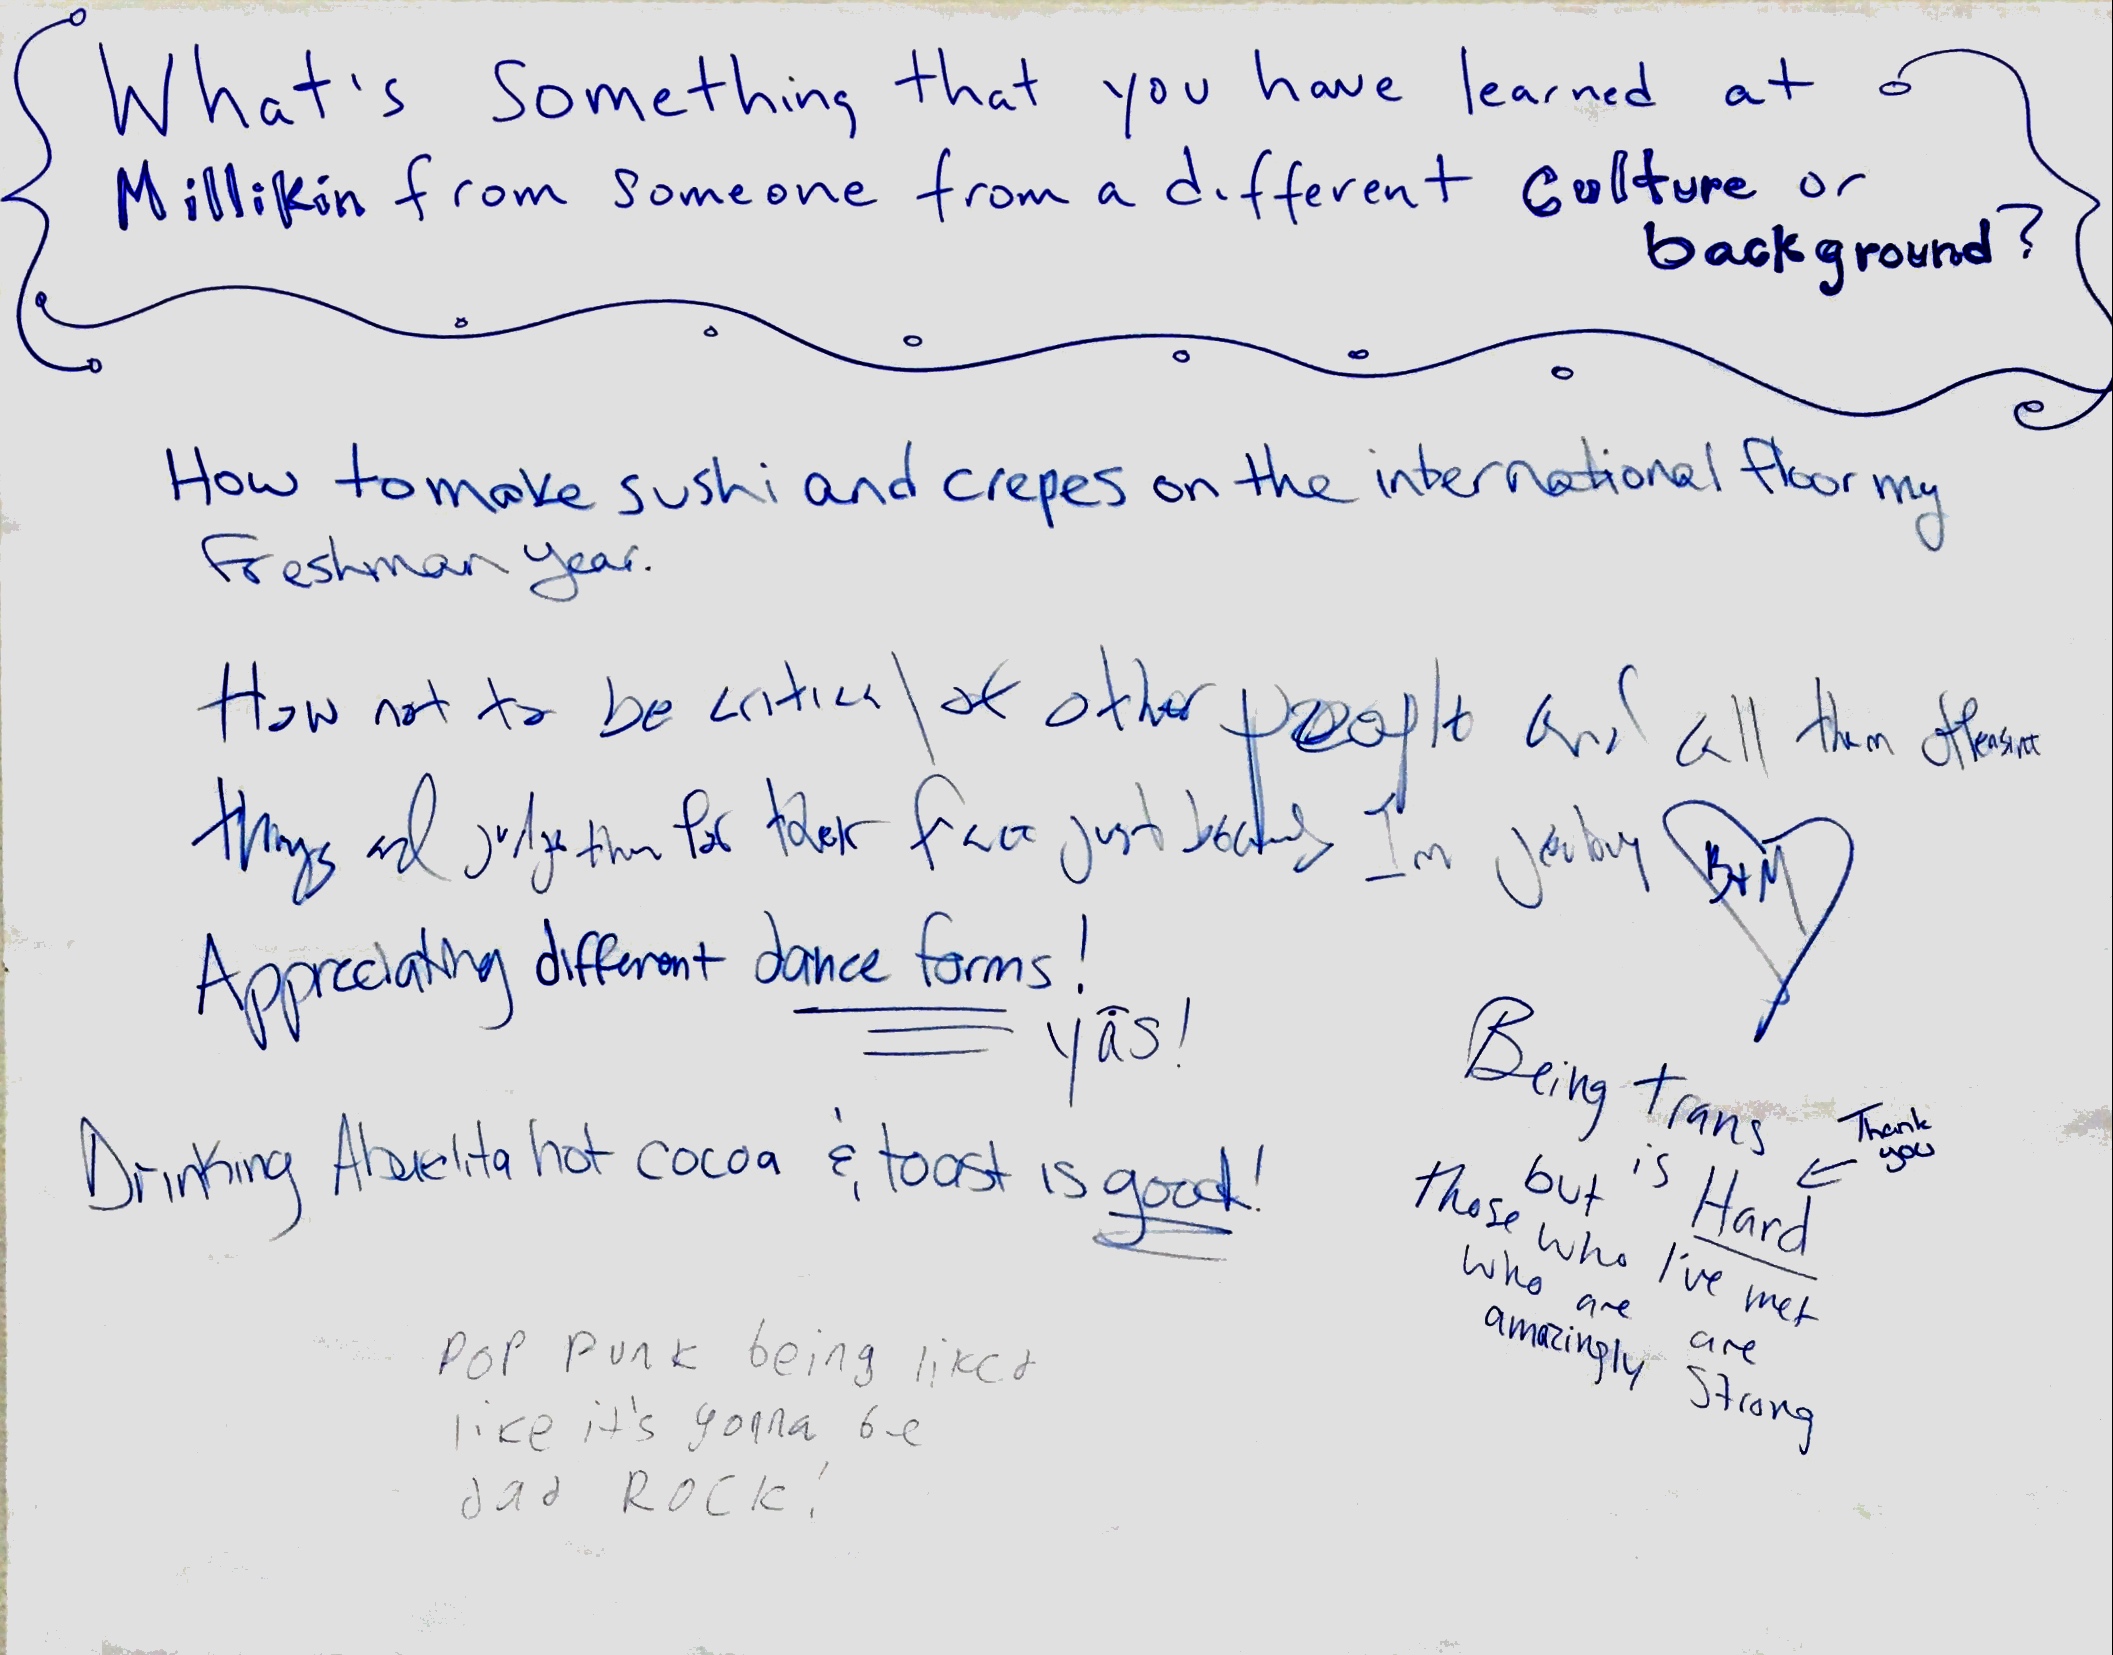 What's something that you have learned at
Millikin from someone from a different Culture or
background?
How to make sushi and crepes on the international floor my
Freshman year.
How not to be critical of other people and call them offensive
things and judge them for their face just because I'm jealous
B+M
Appreciating different dance forms!
yās!
Drinking Abuelita hot cocoa & toast is good!
Being trans
is Hard
Thank
you
but
those who I've met
who are are
amazingly strong
POP PUNK being liked
like it's gonna be
dad ROCK!